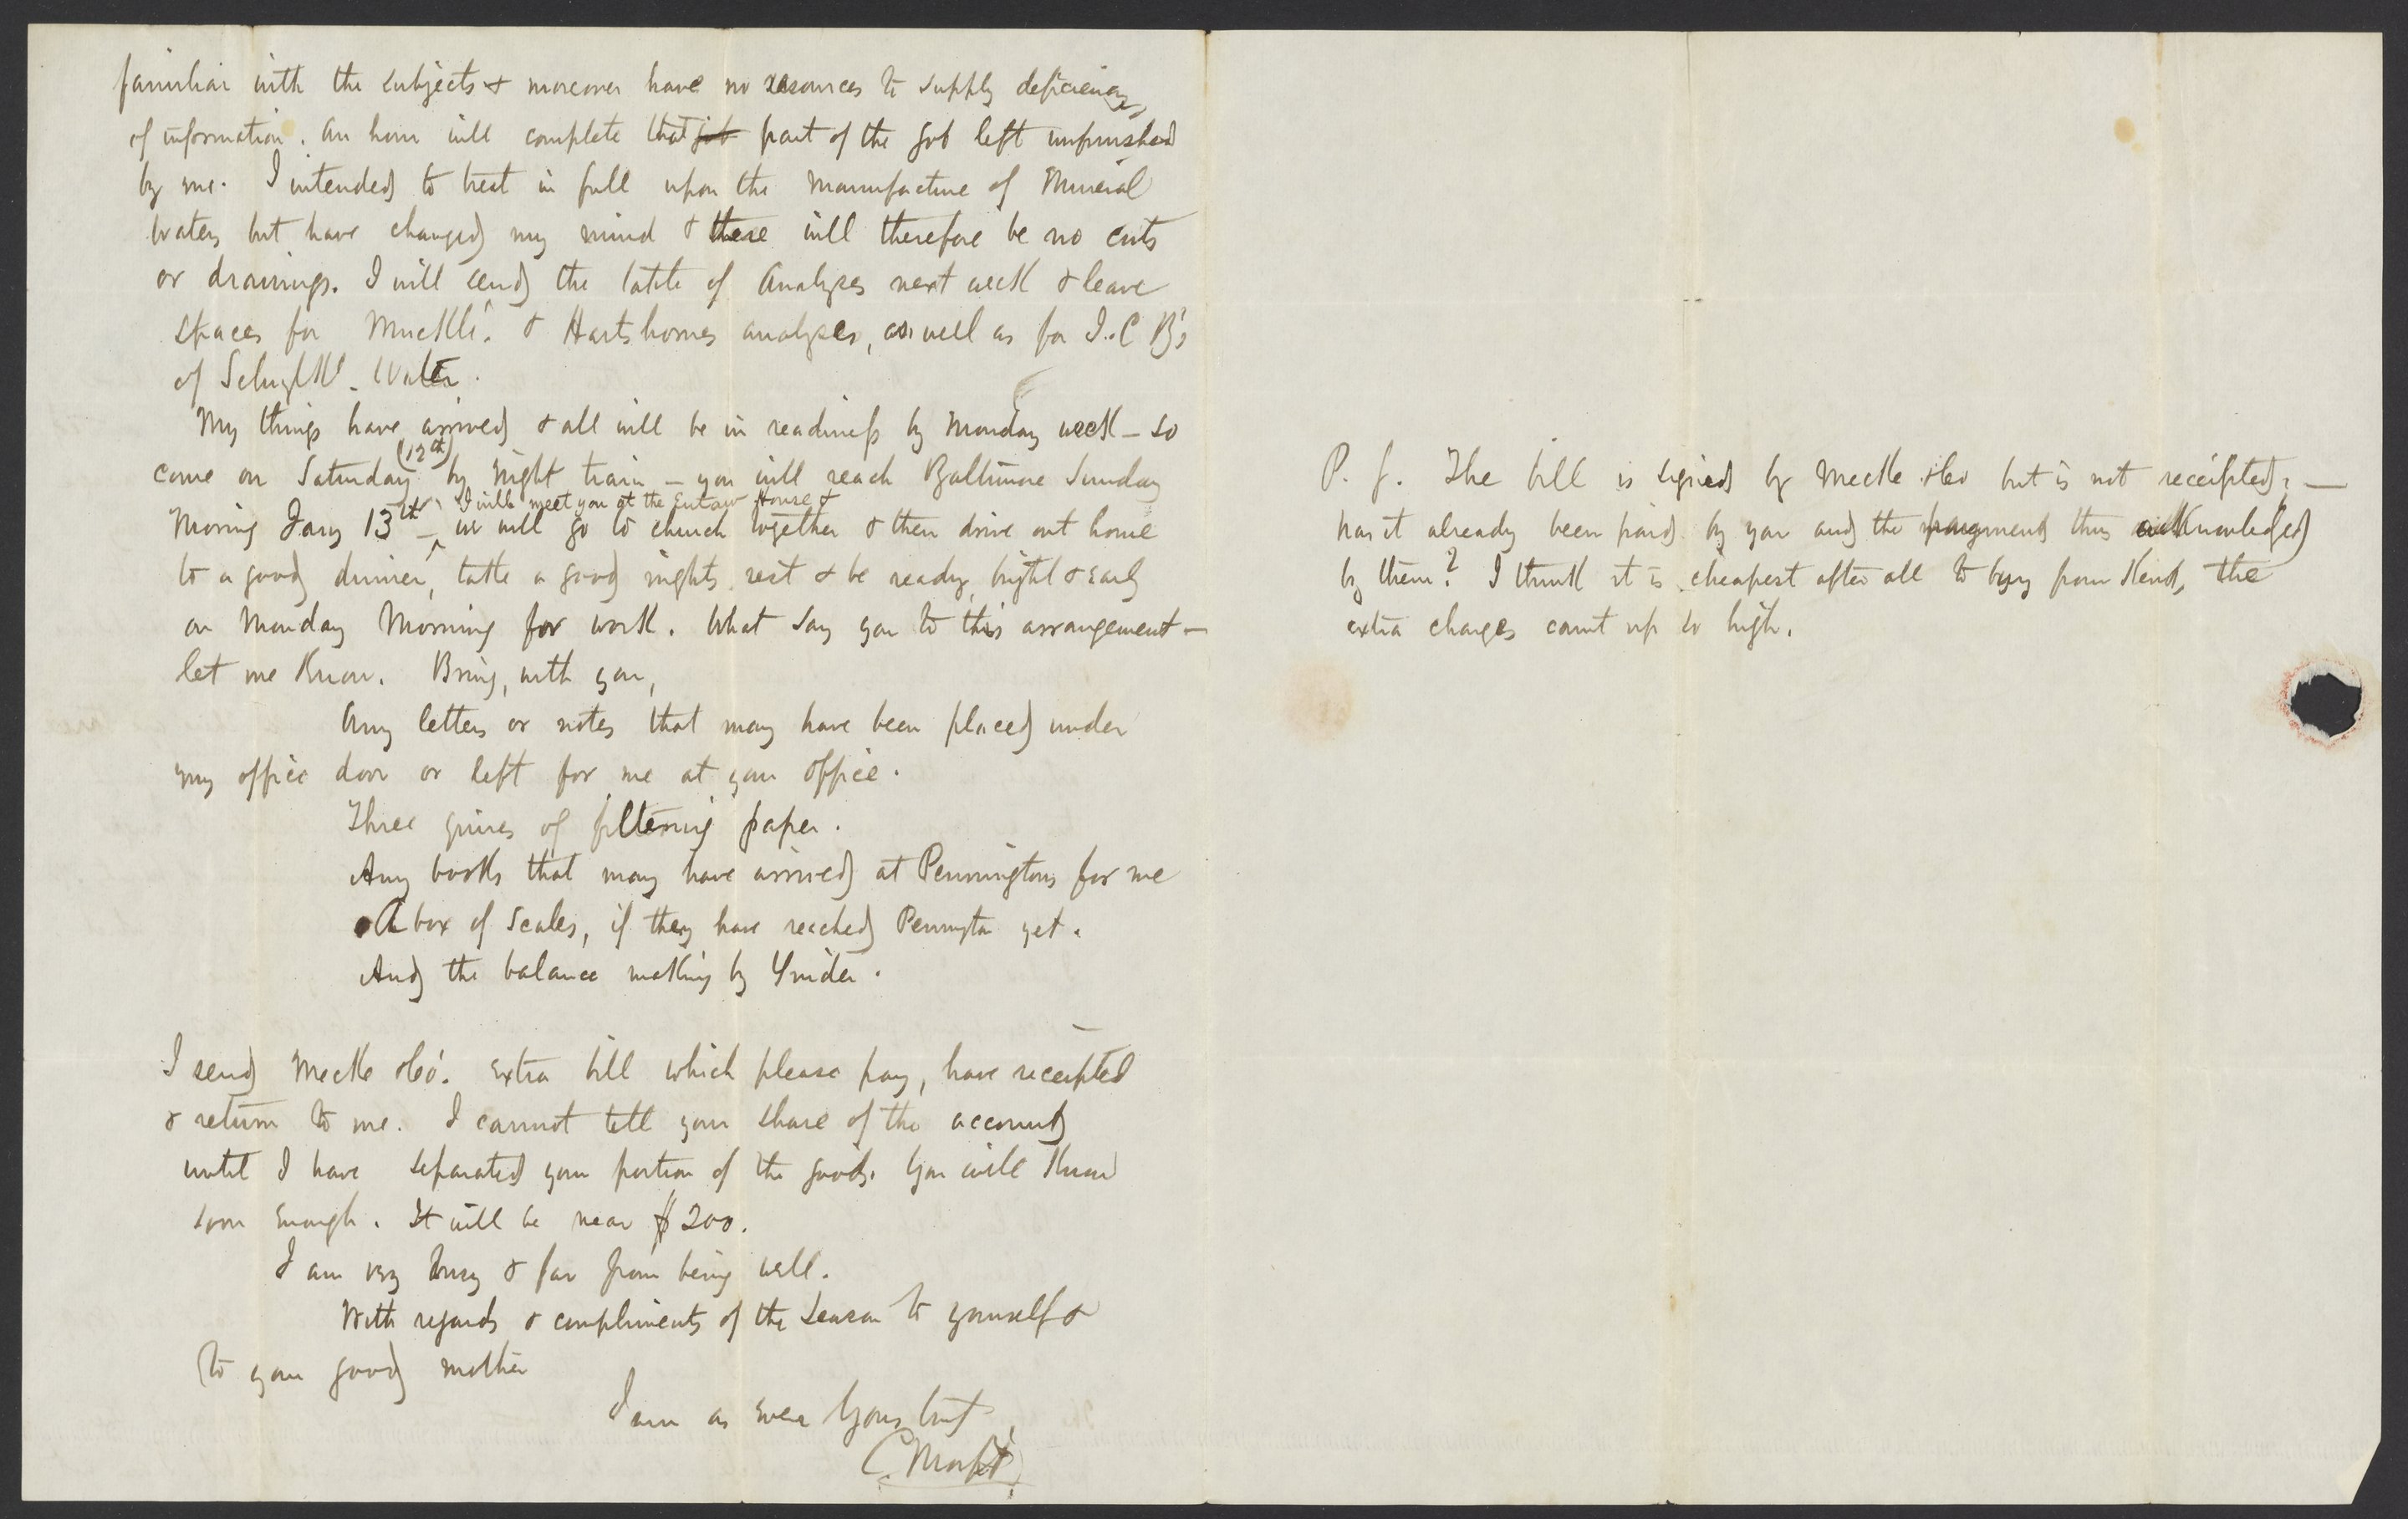 familiar with the subjects & moreover have no resources to supply deficiency
of information. An hour will complete that job part of the job left unfinished
by me. I intended to treat in full upon the manufacture of Mineral
Waters but have changed my mind & there will therefore be no cuts
or drawings. I will send the table of Analyses next week & leave
spaces for Muckle's & Hartshornes analyses, as well as for J. C B's
of Schuylk'l. Water.
My things have arrived & all will be in readiness by Monday week – so
come on Saturday (12th) by night train – you will reach Baltimore Sunday
I will meet you at the Eutaw House &
Morning Jany 13th – we will go to church together & then drive out home
to a good dinner, take a good nights rest & be ready, bright & early
on Monday Morning for work. What say you to this arrangement –
let me know. Bring, with you,
Any letters or notes that may have been placed under
my office door or left for me at your office.
Three quires of filtering paper.
Any books that may have arrived at Penningtons for me
A box of Scales, if they have reached Pennington yet.
And the balance making by
I send Mecke &Co's. extra bill which please pay, have receipted
& return to me. I cannot tell your share of the account
until I have separated your portion of the goods. You will know
soon enough. It will be near $200.
I am very busy & far from being well.
With regards & compliments of the season to yourself &
to your good mother
I am as ever Yours truly
C. Morfit
P. S. The bill is signed by Mecke &Co but is not receipted; —
has it already been paid by you and the payment thus acknowledged
by them? I think it is cheapest after all to buy from Kent, the
extra charges count up so high.